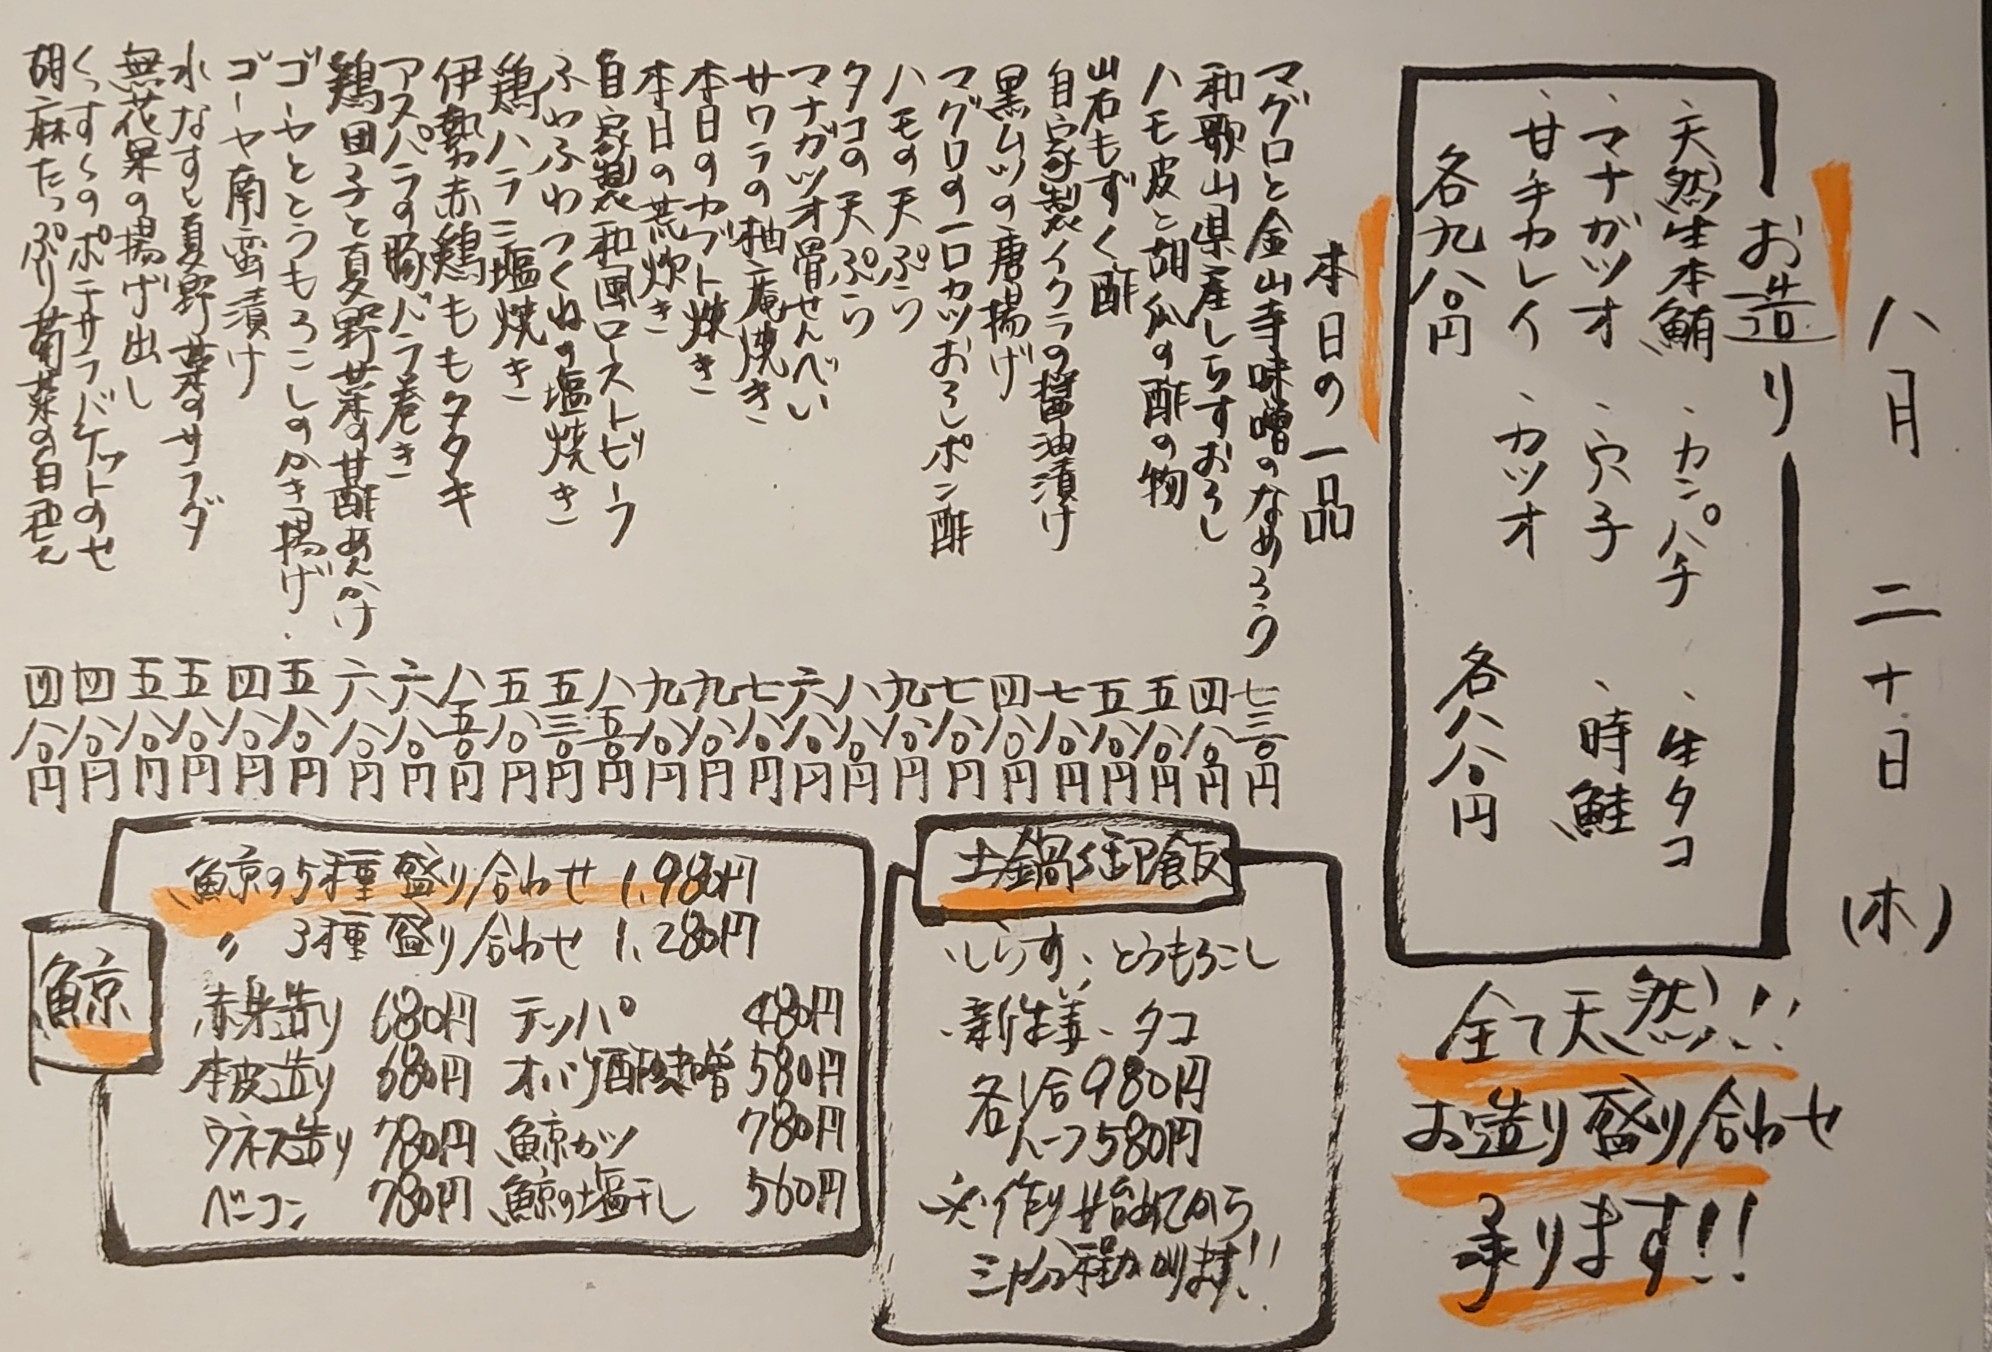 八月 二十日 (木)
お造り
・天然生本鮪 ・カンパチ ・生タコ
・マナガツオ ・穴子 ・時鮭
・甘手カレイ ・カツオ
各九八〇円 各八八〇円
全て天然!!
お造り盛り合わせ
承ります!!
本日の一品
マグロと金山寺味噌のなめろう 七三〇円
和歌山県産しらすおろし 四八〇円
ハモ皮と胡瓜の酢の物 五八〇円
岩もずく酢 五八〇円
自家製イクラの醤油漬け 七八〇円
黒ムツの唐揚げ 四八〇円
マグロの一口カツおろしポン酢 七八〇円
ハモの天ぷら 九八〇円
タコの天ぷら 八八〇円
マナガツオ骨せんべい 六八〇円
サワラの柚庵焼き 七八〇円
本日のカブト焼き 九八〇円
本日の荒炊き 九八〇円
自家製和風ローストビーフ 八五〇円
ふわふわつくねの塩焼き 五三〇円
鶏ハラミ塩焼き 五八〇円
伊勢赤鶏ももタタキ 八五〇円
アスパラの豚バラ巻き 六八〇円
鶏団子と夏野菜の甘酢あんかけ 六八〇円
ゴーヤととうもろこしのかき揚げ 五八〇円
ゴーヤ南蛮漬け 四八〇円
水なすと夏野菜のサラダ 五八〇円
無花果の揚げ出し 五八〇円
くっすくのポテサラバケットのせ 四八〇円
胡麻たっぷり菊菜の白和え 四八〇円
土鍋御飯
・しらす、とうもろこし
・新生姜、タコ
各1合980円
各ハーフ580円
※作り始めてから
三十分程かかります!!
鯨
鯨の5種盛り合わせ 1,980円
〃 3種盛り合わせ 1,280円
赤身造り 680円 テッパ 480円
本皮造り 680円 オバケ酢味噌 580円
ウネス造り 780円 鯨カツ 780円
ベーコン 780円 鯨の塩干し 560円